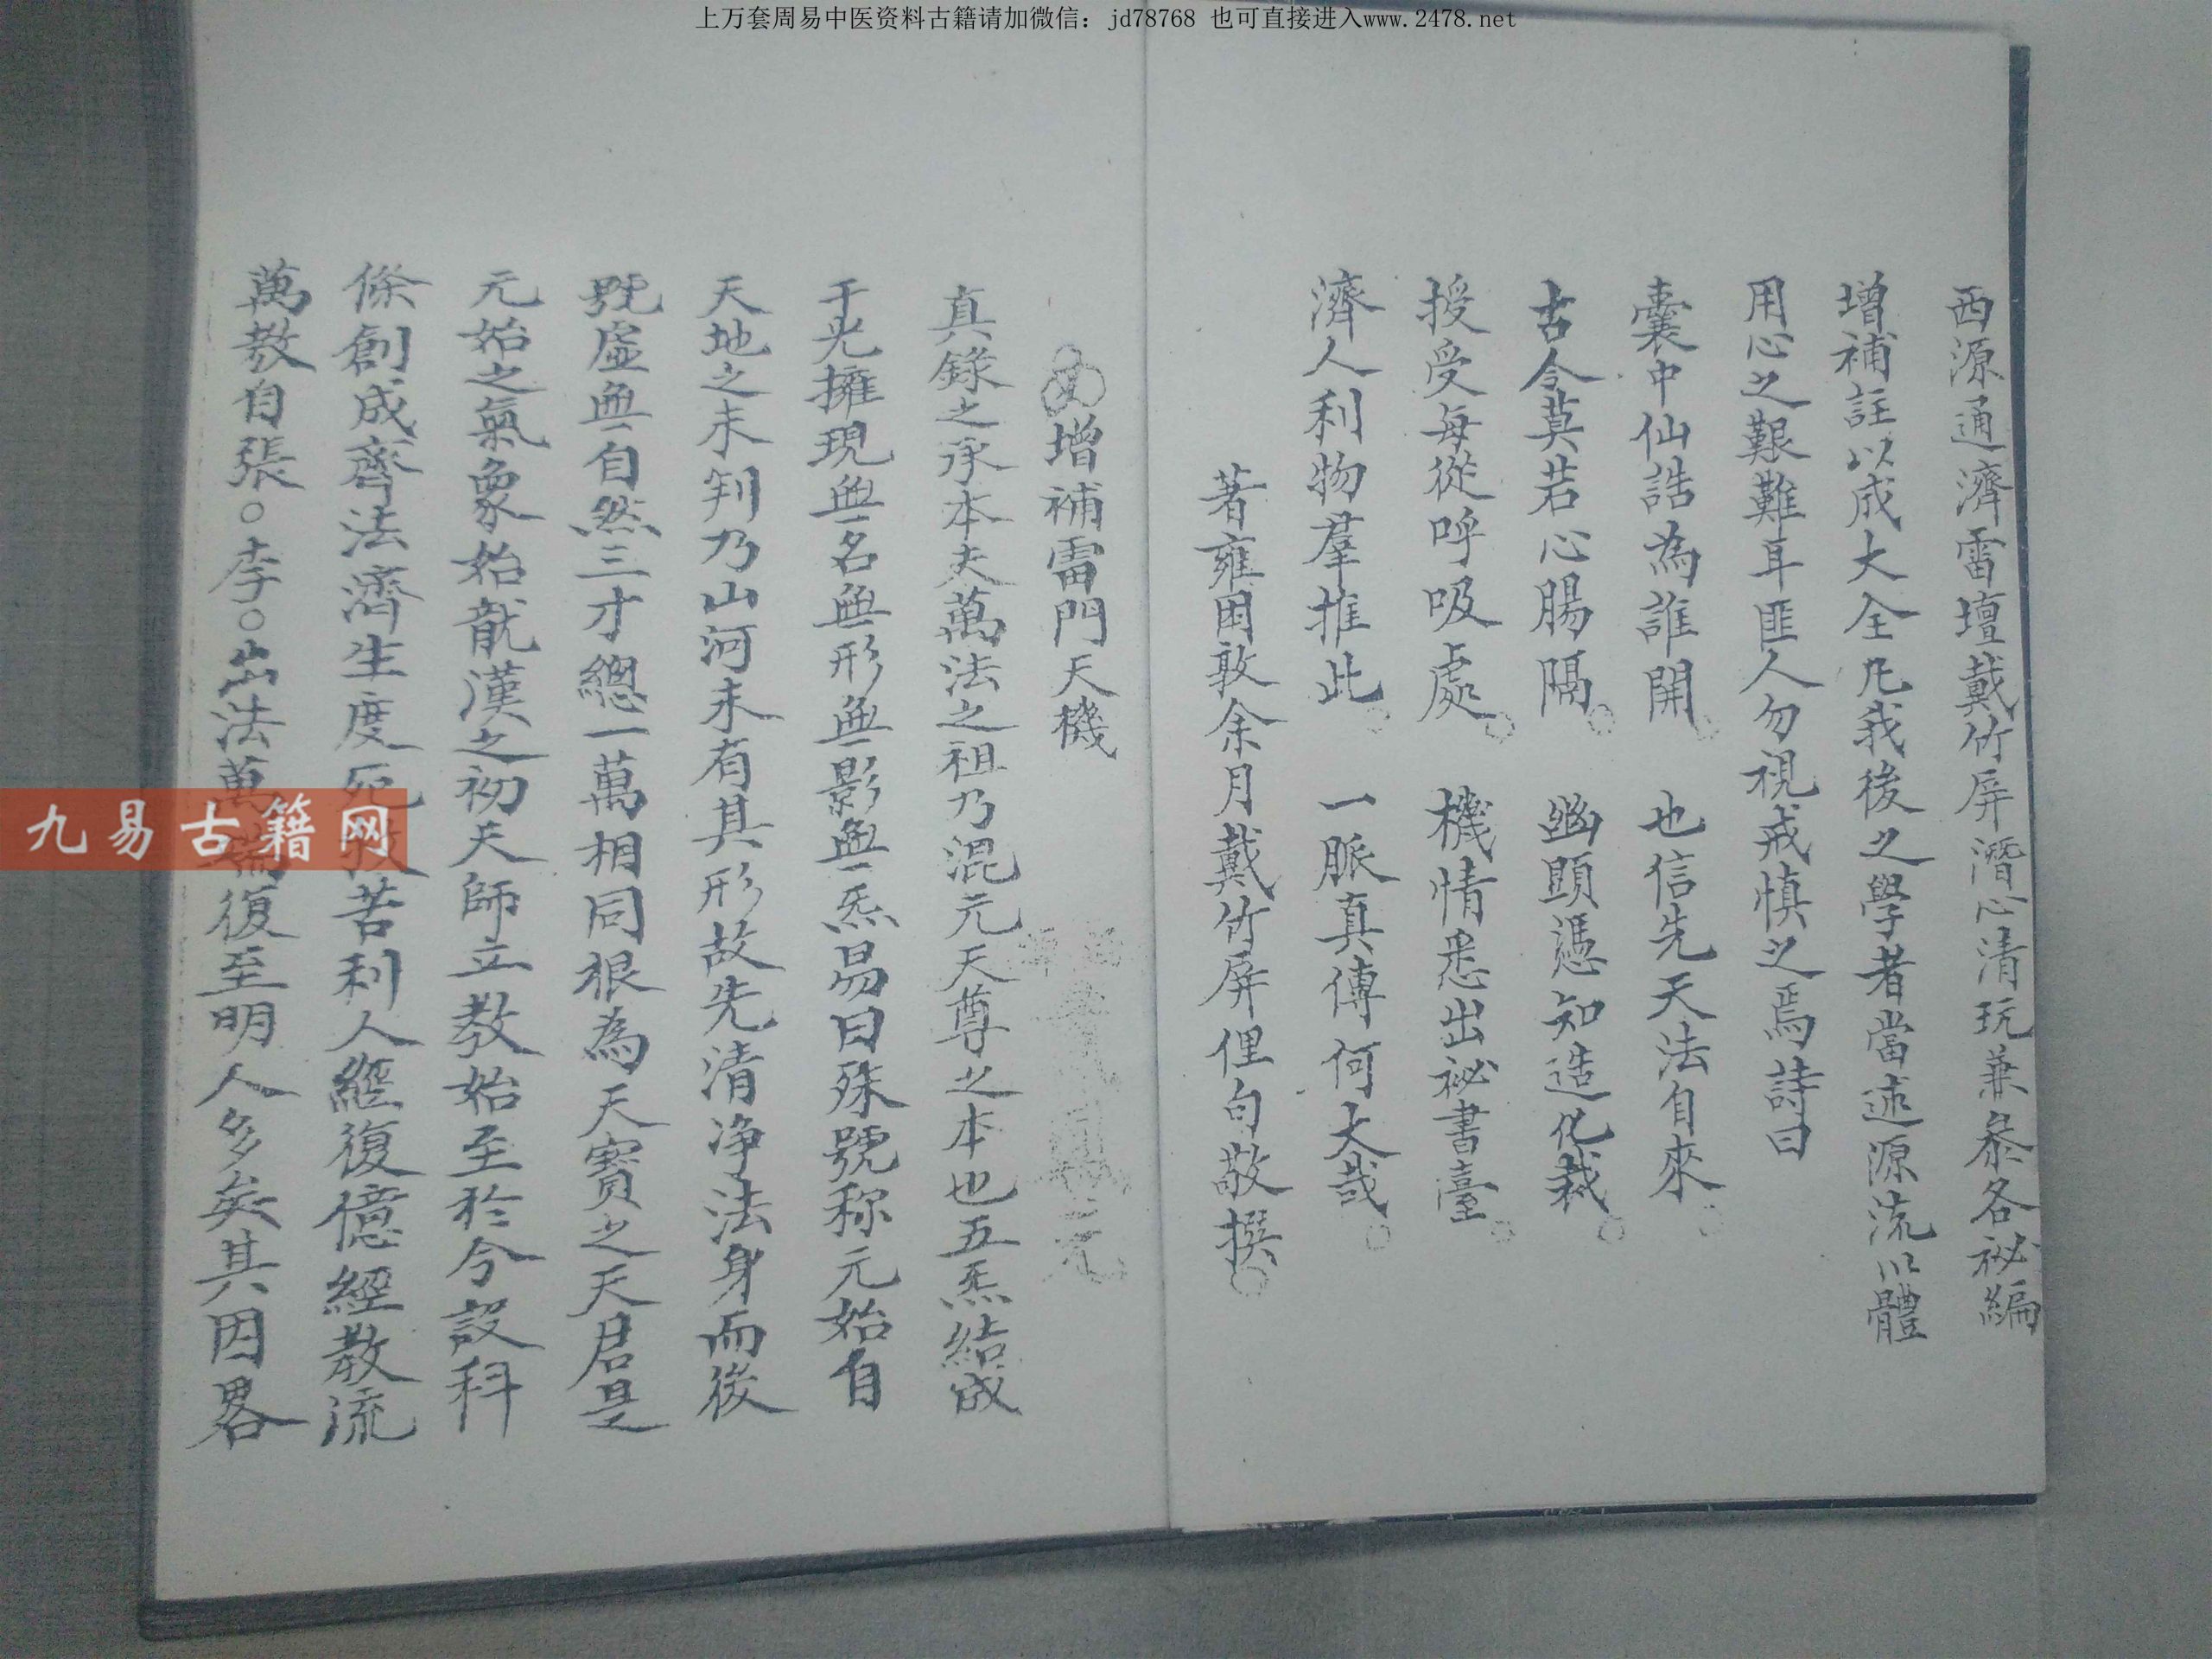 上万套周易中医资料古籍请加微信：jd78768 也可直接进入www.2478.net
西源通濟雷壇戴竹屏潛心清玩兼叅各祕編
增補註以成大全凡我後之學者當述源流以體
用心之艱難耳匪人勿視戒慎之焉詩曰
囊中仙誥為誰開。 也信先天法自來。
古今莫若心腸隔。 幽顕憑知造化裁。
授受每從呼吸處。 機情悉出祕書臺。
濟人利物羣推此。 一脈真傳何大哉。
著雍困敦余月戴竹屏俚句敬撰。
增補雷門天機
真錄之承本夫萬法之祖乃混元天尊之本也五炁結成
于光擁現無名無形無影無炁易曰殊號称元始自
天地之未判乃山河未有其形故先清净法身而後
既虛無自然三才總一萬相同根為天寶之天君是
元始之氣象始龍漢之初天師立教始至於今設科
條創成齋法濟生度死救苦利人經復億經教流
萬教自張。李。出法萬端復至明人多矣其因畧
九易古籍网